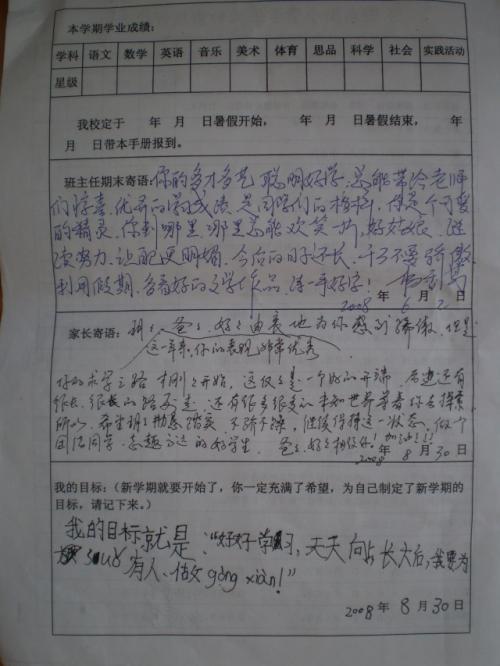 本学期学业成绩：
学科 语文 数学 英语 音乐 美术 体育 思品 科学 社会 实践活动
星级
我校定于 年 月 日暑假开始， 年 月 日暑假结束， 年
月 日带本手册报到。
班主任期末寄语：你的多才多艺，聪明好学，总能带给老师
们惊喜，优异的学习成绩，是同学们的榜样，像是个可爱
的精灵，你到哪里，哪里总能欢笑一片，好好玩，继
续努力，让 更明媚，今后的日子还长，千万不要骄傲
利用假期，多看好的文学作品，练一手好字！
2008 年 6 月 日
家长寄语： 爸爸、妈妈由衷地为你感到骄傲，但是
这一年来，你的表现非常优秀
你的求学之路才刚刚开始，这仅仅是一个好的开端，后边还有
很长、很长的路要走，还有很多很多的未知世界等着你去探索
所以，希望 踏实，不骄不躁，继续保持这一状态，做个
团结同学、志趣 的好学生。爸爸、妈妈相信你！加油！！！
2008 年 8 月 30 日
我的目标：（新学期就要开始了，你一定充满了希望，为自己制定了新学期的
目标，请记下来。）
我的目标就是：“好好学习，天天向上，长大后，我要为
suǒ有人、做 gòng xiàn！”
2008 年 8 月 30 日